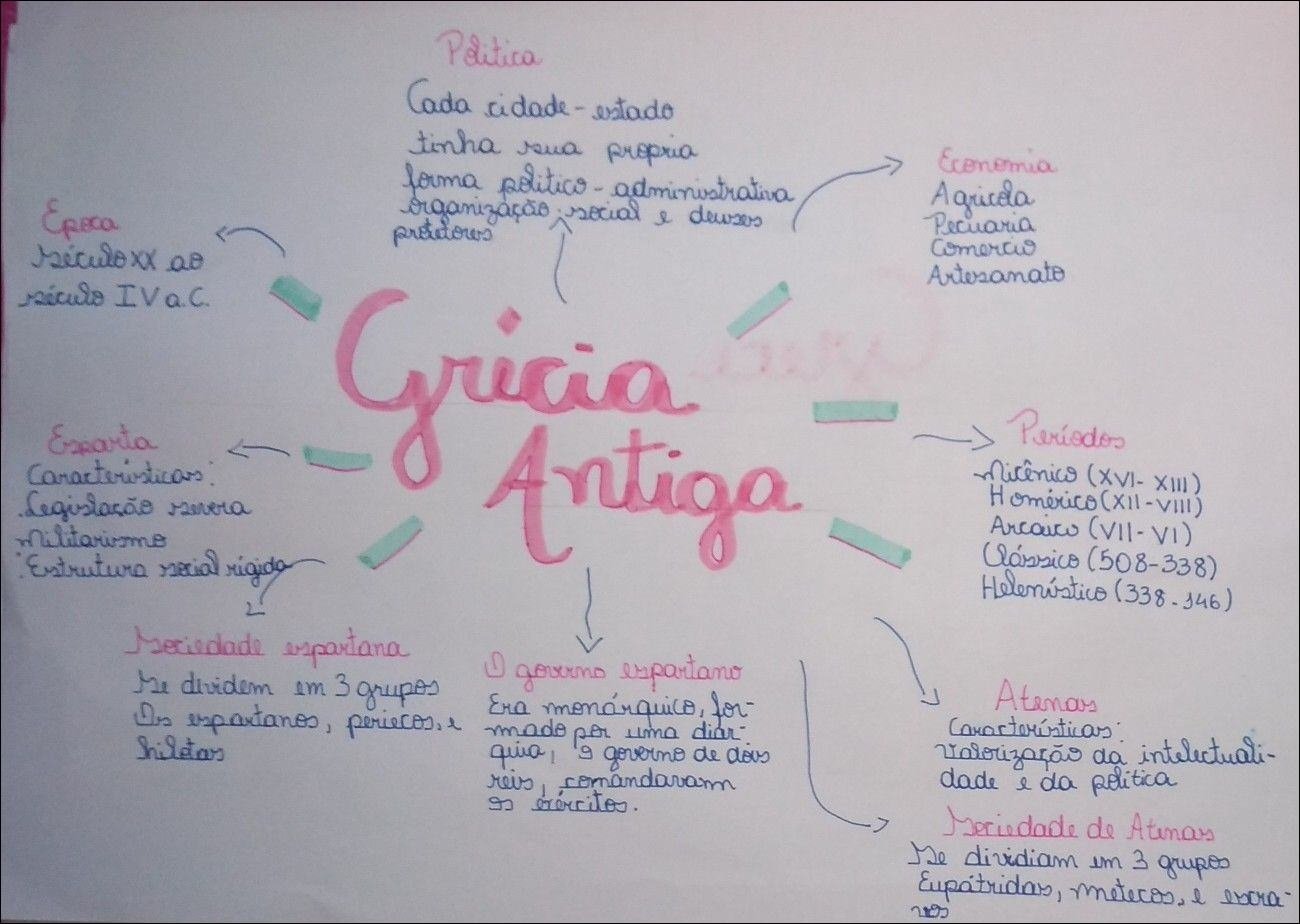 Politica
Cada cidade-estado
tinha sua propria
forma politico-administrativa
organização social e deuses
protetores
Economia
Agricola
Pecuaria
Comercio
Artesanato
Epoca
século XX ao
século IV a.C.
Grécia
Antiga
Esparta
Características:
Legislação severa
Militarismo
Estrutura social rígida
Períodos
Micênico (XVI-XIII)
Homérico (XII-VIII)
Arcaico (VII-VI)
Clássico (508-338)
Helenístico (338-146)
Sociedade espartana
Se dividem em 3 grupos
Os espartanos, periecos, e
hilotas
O governo espartano
Era monárquico, for-
mado por uma diar-
quia, o governo de dois
reis, comandavam
os exércitos.
Atenas
Características:
valorização da intelectuali-
dade e da política
Sociedade de Atenas
Se dividiam em 3 grupos
Eupátridas, metecos, e escra-
vos